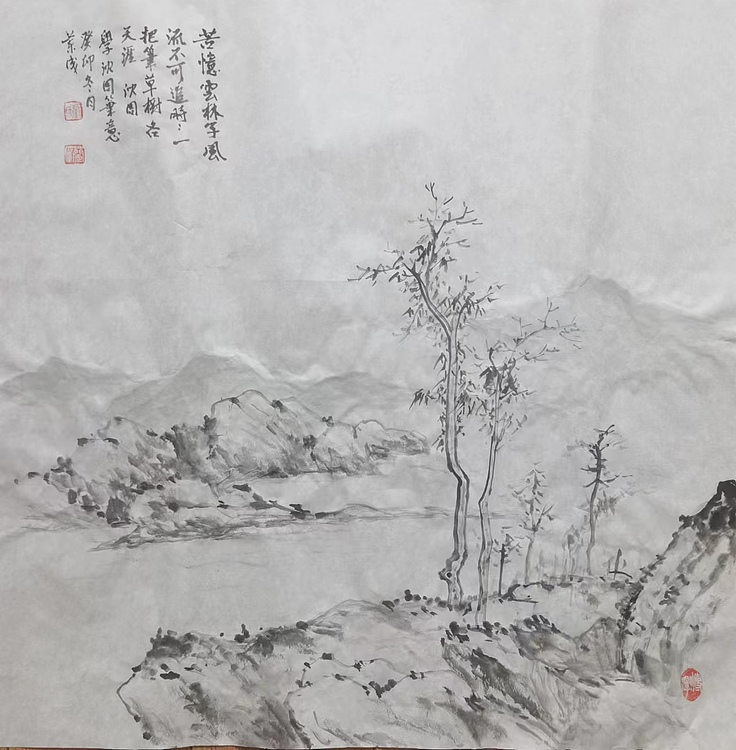 苦憶雲林子風
流不可追時〻一
把筆草樹各
天涯 沈周
學沈周筆意
癸卯冬月
業成